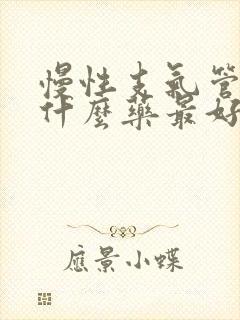 慢性支氣管
什麼藥最好
應景小蝶